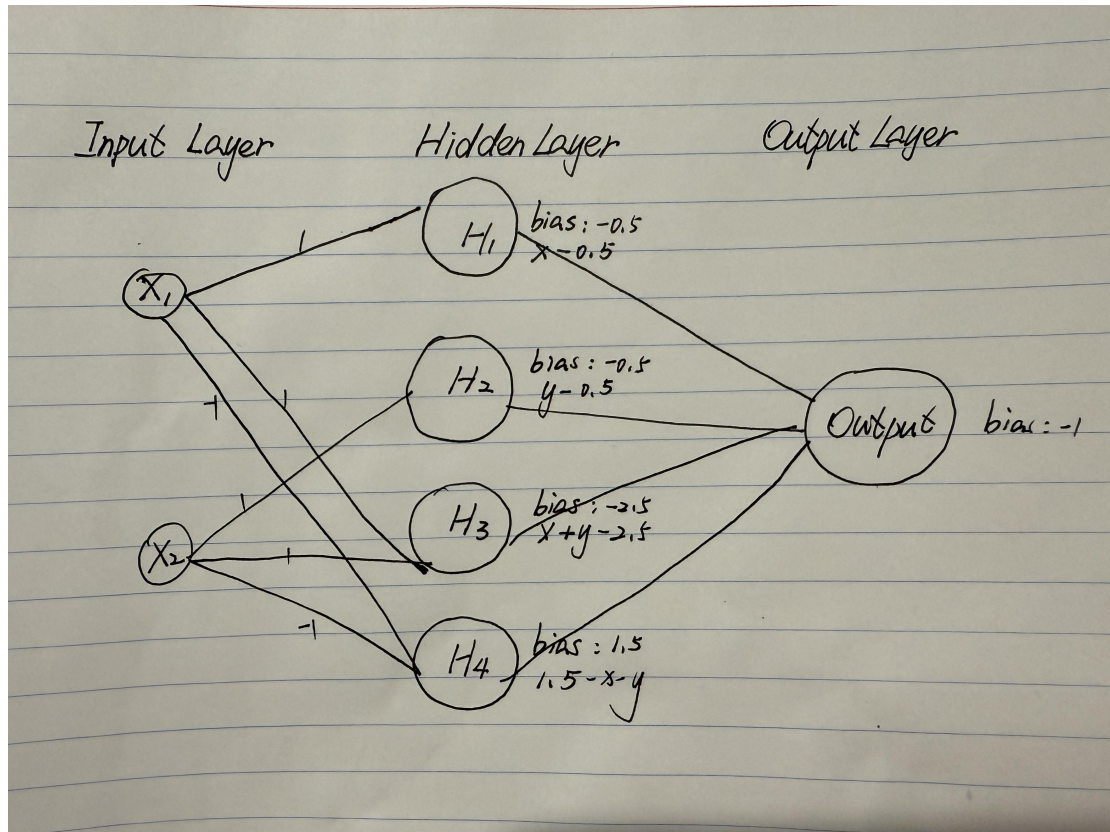 Input Layer
Hidden Layer
Output Layer
X₁
X₂
1
-1
1
1
1
-1
H₁
bias: -0.5
x-0.5
H₂
bias: -0.5
y-0.5
H₃
bias: -2.5
x+y-2.5
H₄
bias: 1.5
1.5-x-y
Output
bias: -1